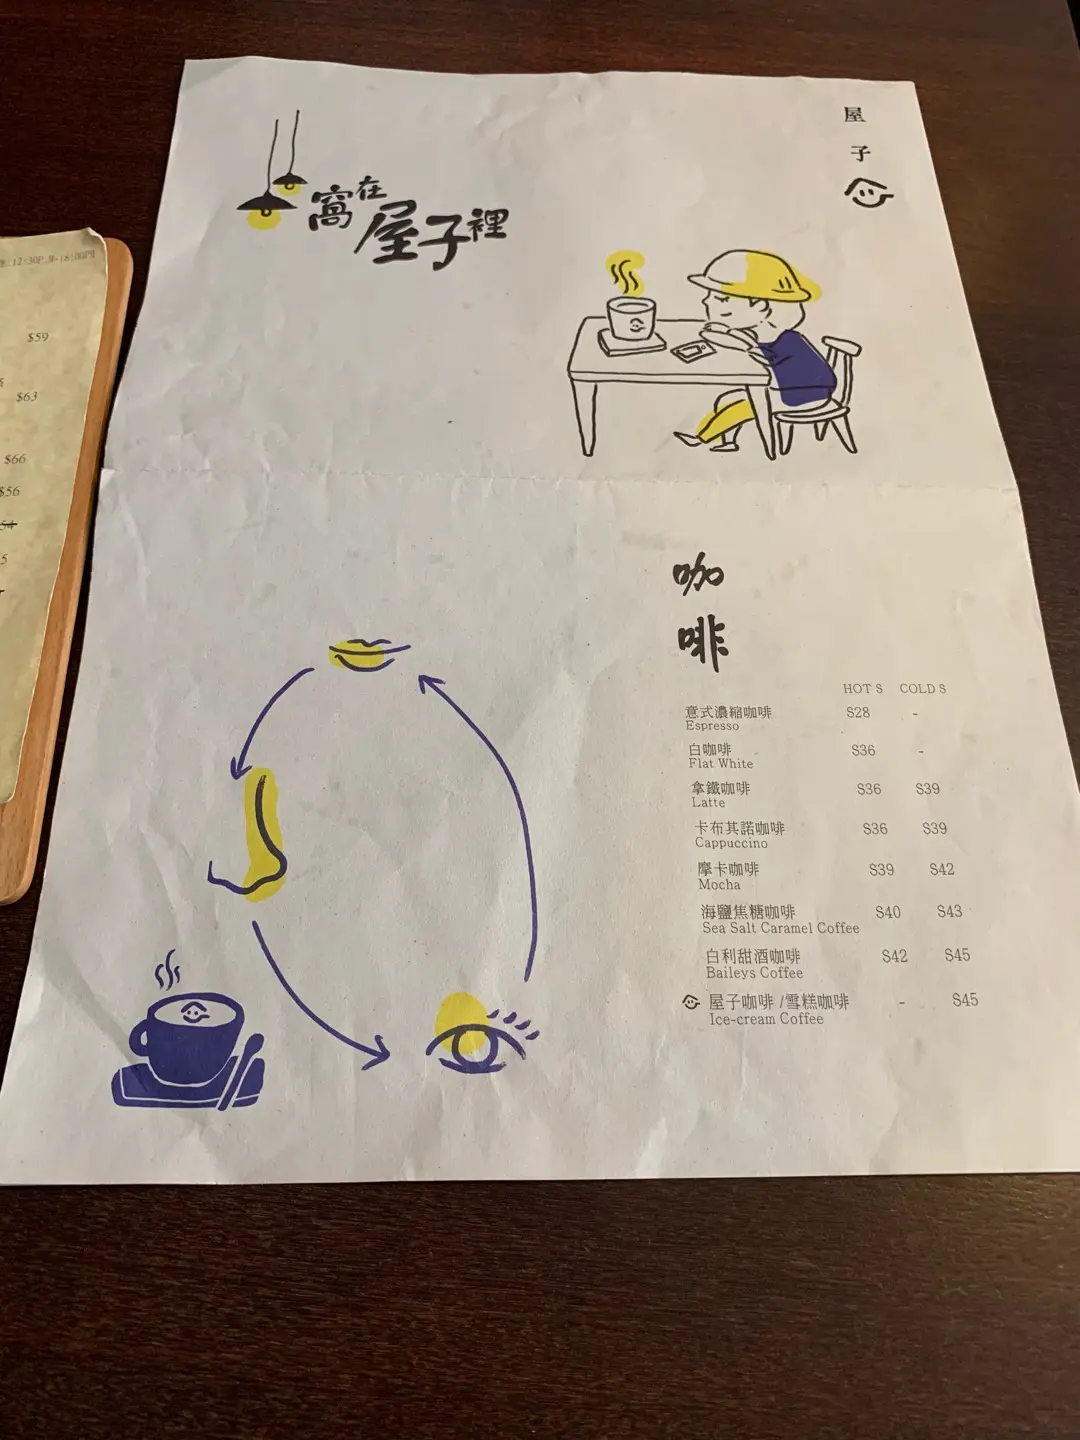 屋子
窩在屋子裡
12:30P.M-16:00PM
$59
$63
$66
$56
咖啡
HOT $ COLD $
意式濃縮咖啡 $28 -
Espresso
白咖啡 $36 -
Flat White
拿鐵咖啡 $36 $39
Latte
卡布其諾咖啡 $36 $39
Cappuccino
摩卡咖啡 $39 $42
Mocha
海鹽焦糖咖啡 $40 $43
Sea Salt Caramel Coffee
白利甜酒咖啡 $42 $45
Baileys Coffee
屋子咖啡 /雪糕咖啡 - $45
Ice-cream Coffee